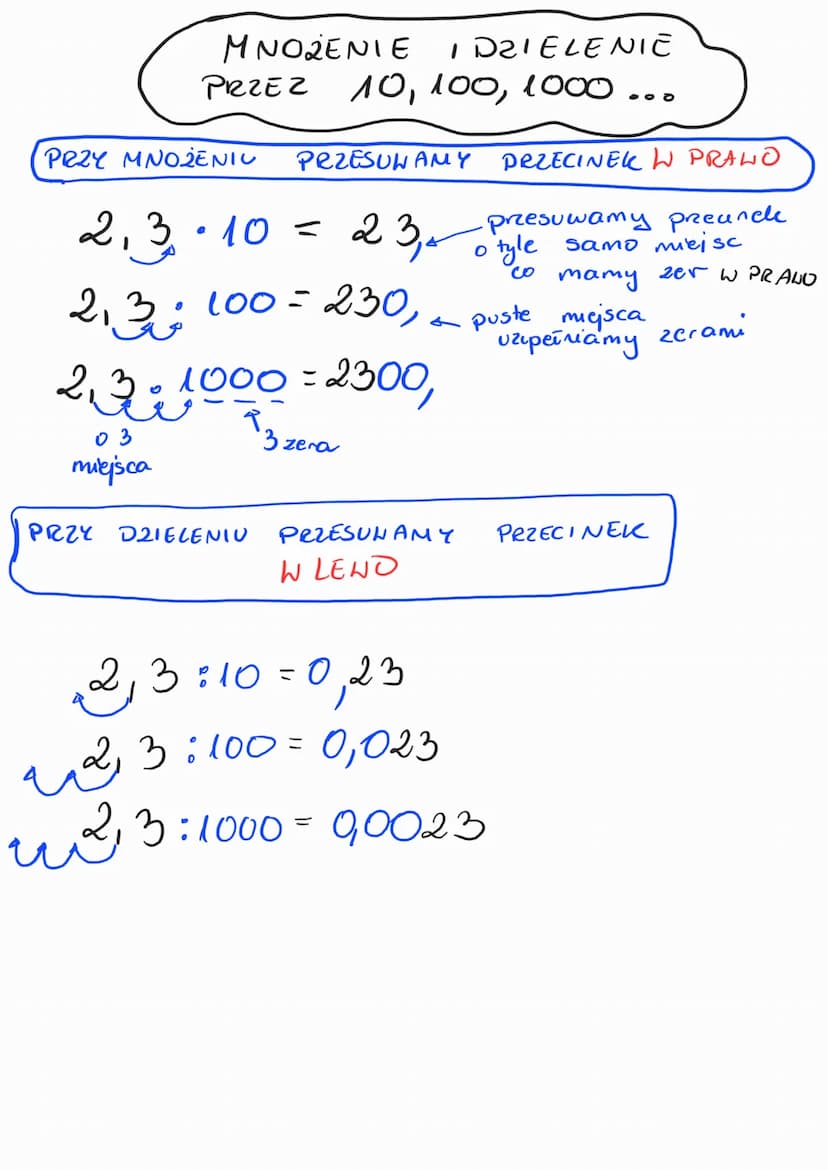 MNOŻENIE I DZIELENIE
PRZEZ 10, 100, 1000 ...
PRZY MNOŻENIU PRZESUWAMY PRZECINEK W PRAWO
2,3 · 10 = 23, przesuwamy przecinek
o tyle samo miejsc
co mamy zer W PRAWO
2,3 · 100 = 230, puste miejsca
uzupełniamy zerami
2,3 · 1000 = 2300,
o 3
miejsca
3 zera
PRZY DZIELENIU PRZESUWAMY PRZECINEK
W LEWO
2,3 : 10 = 0,23
2,3 : 100 = 0,023
2,3 : 1000 = 0,0023